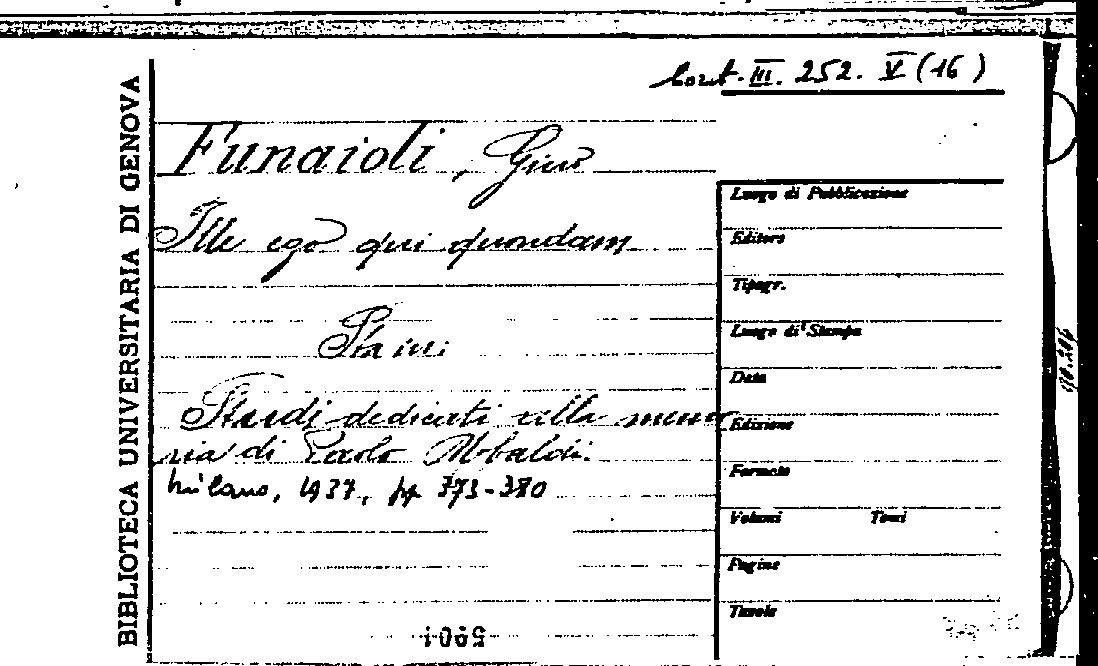 III. 252. V (16)
BIBLIOTECA UNIVERSITARIA DI GENOVA
Funaioli, Gius
Ille ego qui quondam
Sta in:
Studi dedicati alla memo
ria di Paolo Ubaldi.
Milano, 1937, pp 373-380
Luogo di Pubblicazione
Editore
Tipogr.
Luogo di Stampa
Data
Edizione
Formato
Volumi Tomi
Pagine
Tavole